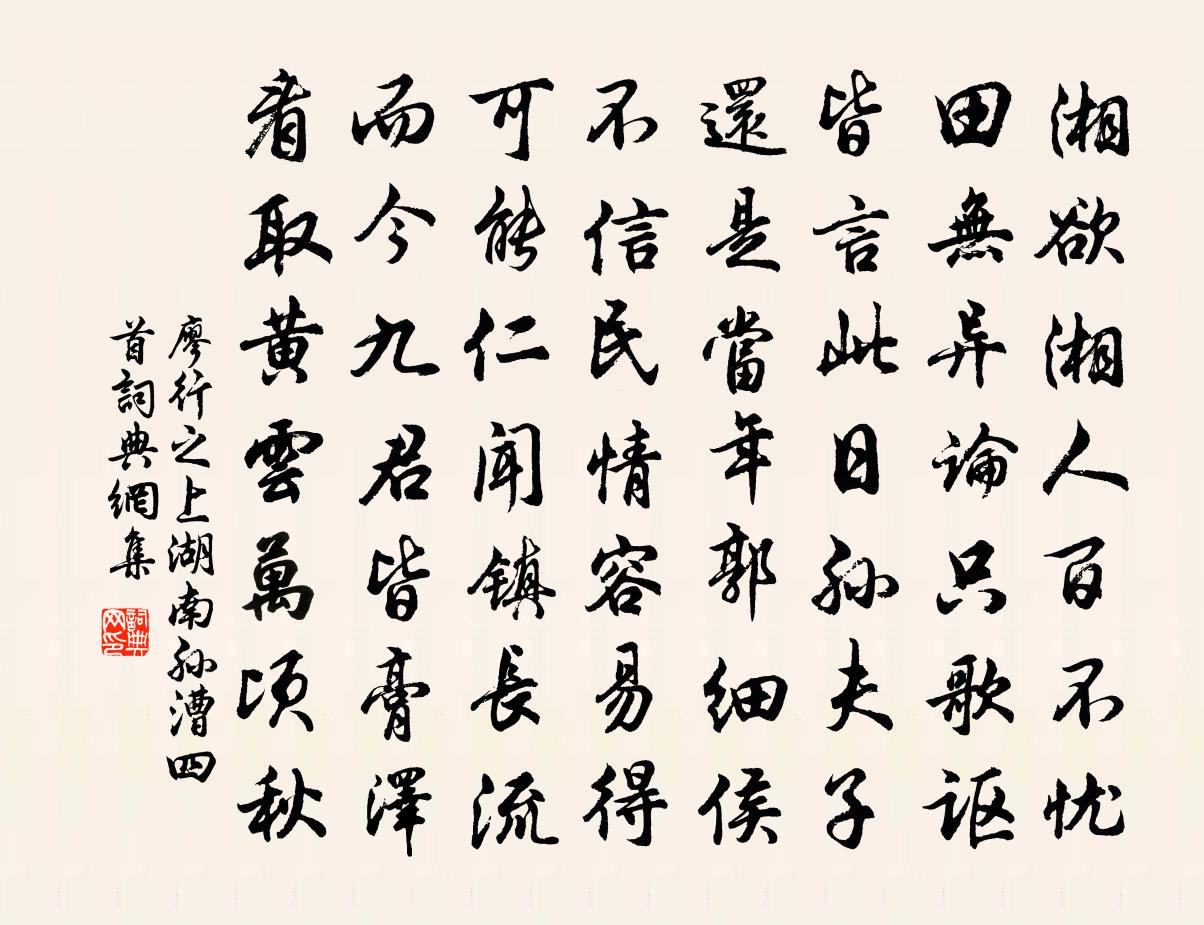 湘欲湘人百不忧
田無异論只歌讴
皆言此日孙夫子
還是當年郭细侯
不信民情容易得
可能仁闻鎮長流
而今九君皆膏澤
看取黃雲萬頃秋
廖行之上湖南孙漕四
首詞典網集
詞典网印